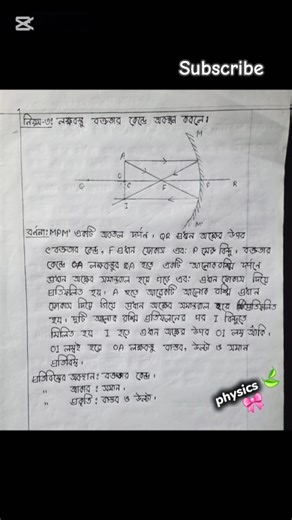 Cut
Subscribe
নিয়ম-৩। লক্ষ্যবস্তু বক্রতার কেন্দ্রে অবস্থান করলে:
M
A
Q O C F P R
I
M'
বর্ণনা: MPM' একটি অবতল দর্পন, QR প্রধান অক্ষের উপর
C বক্রতার কেন্দ্র, F প্রধান ফোকাস এবং P মেরু বিন্দু, বক্রতার
কেন্দ্রে OA লক্ষ্যবস্তুর A হতে একটি আলোকরশ্মি দর্পনে
প্রধান অক্ষের সমান্তরাল হয়ে এবং প্রধান ফোকাস দিয়ে
প্রতিফলিত হয়, A হতে আরেকটি আলোক রশ্মি প্রধান
ফোকাস দিয়ে গিয়ে প্রধান অক্ষের সমান্তরাল হয়ে প্রতিফলিত
হয়, দুটি আলোক রশ্মি প্রতিফলনের পর I বিন্দুতে
মিলিত হয় I হতে প্রধান অক্ষের উপর OI লম্ব আঁকি,
OI লম্বই হচ্ছে OA লক্ষ্যবস্তুর বাস্তব, উল্টা ও সমান
প্রতিবিম্ব,
প্রতিবিম্বের অবস্থান: বক্রতার কেন্দ্রে,
" আকার: সমান,
" প্রকৃতি: বাস্তব ও উল্টা,
physics